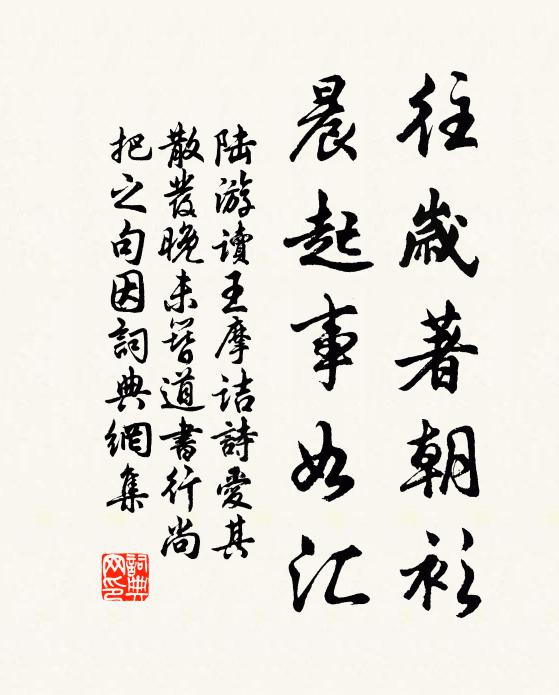 往歲著朝衫
晨起事如汇
陆游讀王摩诘詩愛其
散发晚未簪道書行尚
把之句因詞典網集
詞典网印